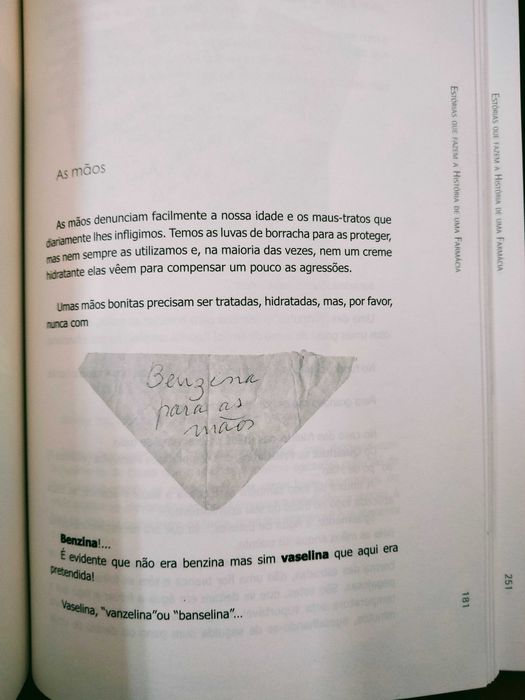 As mãos
As mãos denunciam facilmente a nossa idade e os maus-tratos que
diariamente lhes infligimos. Temos as luvas de borracha para as proteger,
mas nem sempre as utilizamos e, na maioria das vezes, nem um creme
hidratante elas vêem para compensar um pouco as agressões.
Umas mãos bonitas precisam ser tratadas, hidratadas, mas, por favor,
nunca com
Benzina
para as
mãos
Benzina!...
É evidente que não era benzina mas sim vaselina que aqui era
pretendida!
Vaselina, "vanzelina"ou "banselina"...
Estórias que fazem a História de uma Farmácia
181
Estórias que fazem a História de uma Farmácia
251